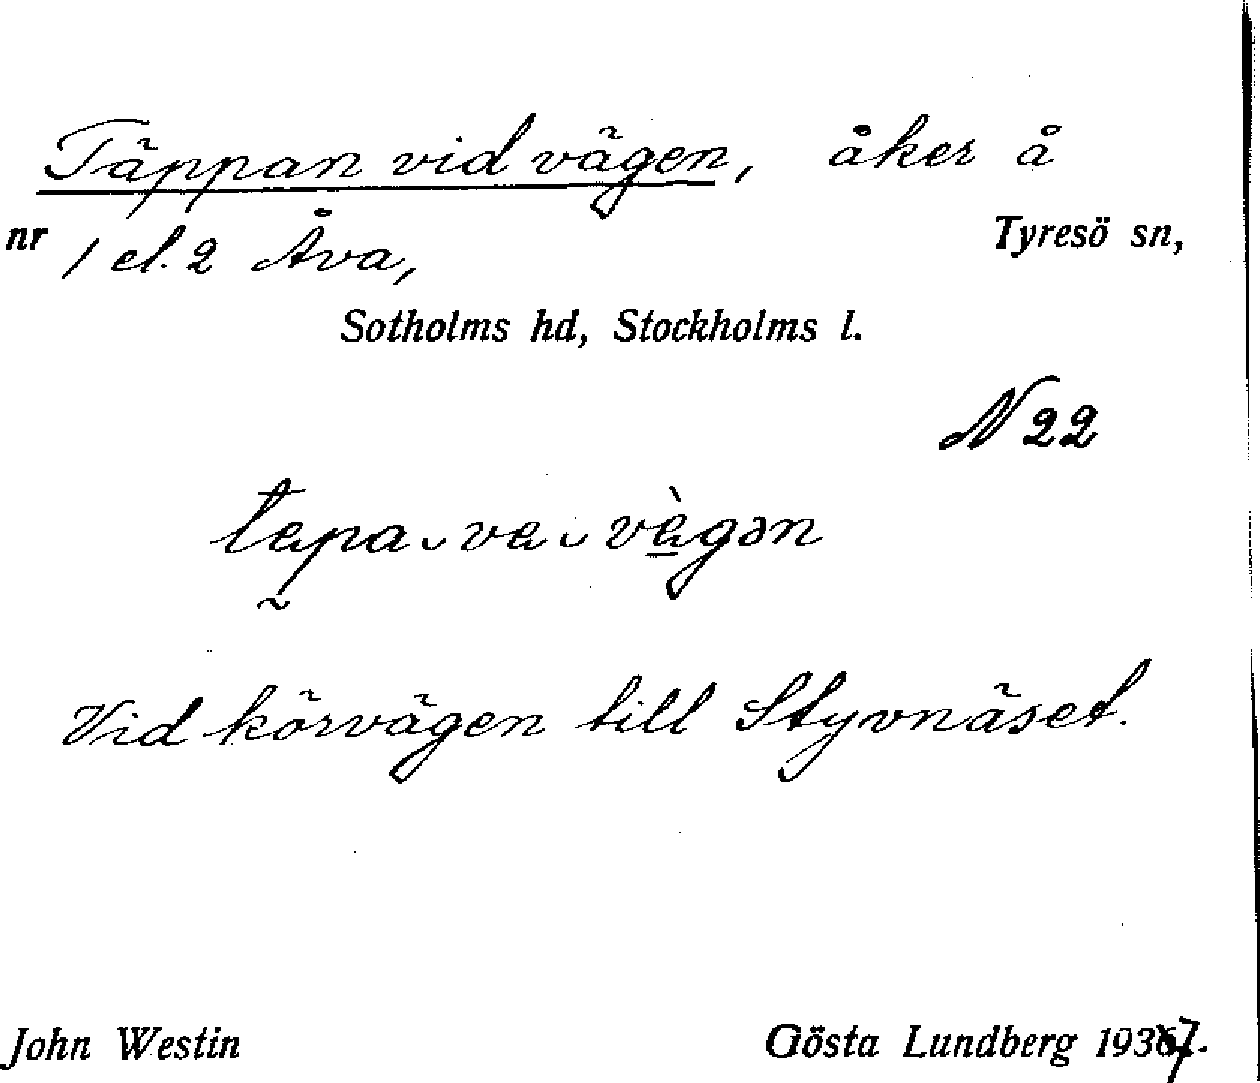 Täppan vid vägen, åker å
nr 1 el. 2 Åva, Tyresö sn,
Sotholms hd, Stockholms l.
N 22
tepa va vègən
Vid körvägen till Styvnäset.
John Westin Gösta Lundberg 1937.